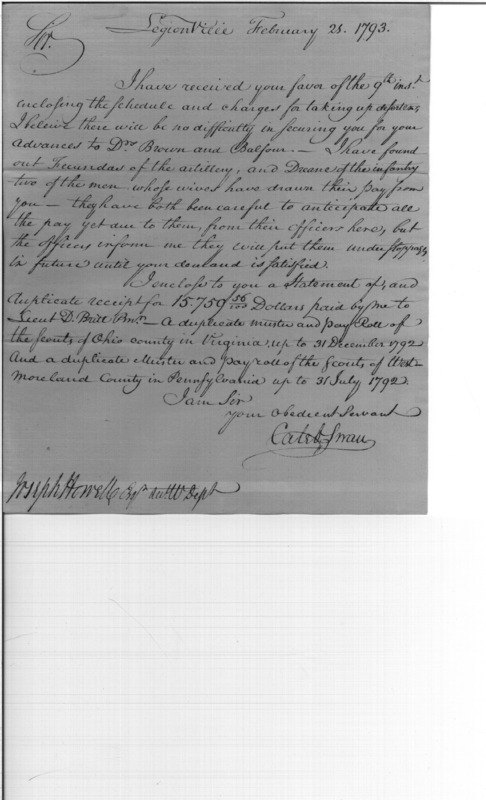 Legionville February 21. 1793.
Sir.
I have received your favor of the 9th inst.
enclosing the schedule and charges for taking up deserters,
I beleive there will be no difficulty in securing you for your
advances to Drs Brown and Balfour. — I have found
out of the artillery, and Deane of the infantry
two of the men whose wives have drawn their pay from
you — they have both been careful to anticipate all
the pay yet due to them, from their officers here, but
the officers inform me they will put them under stoppages
in future until your demand is satisfied.
I enclose to you a Statement of, and
duplicate receipt for 15.759 56/100 Dollars paid by me to
Lieut D. Britt Pmr. — A duplicate muster and pay Roll of
the Scouts of Ohio county in Virginia, up to 31 December 1792
And a duplicate Muster and payroll of the Scouts of West-
moreland County in Pennsylvania up to 31 July 1792.
I am Sir
your obedient Servant
Caleb Swan
Joseph Howell Esqr. Dept